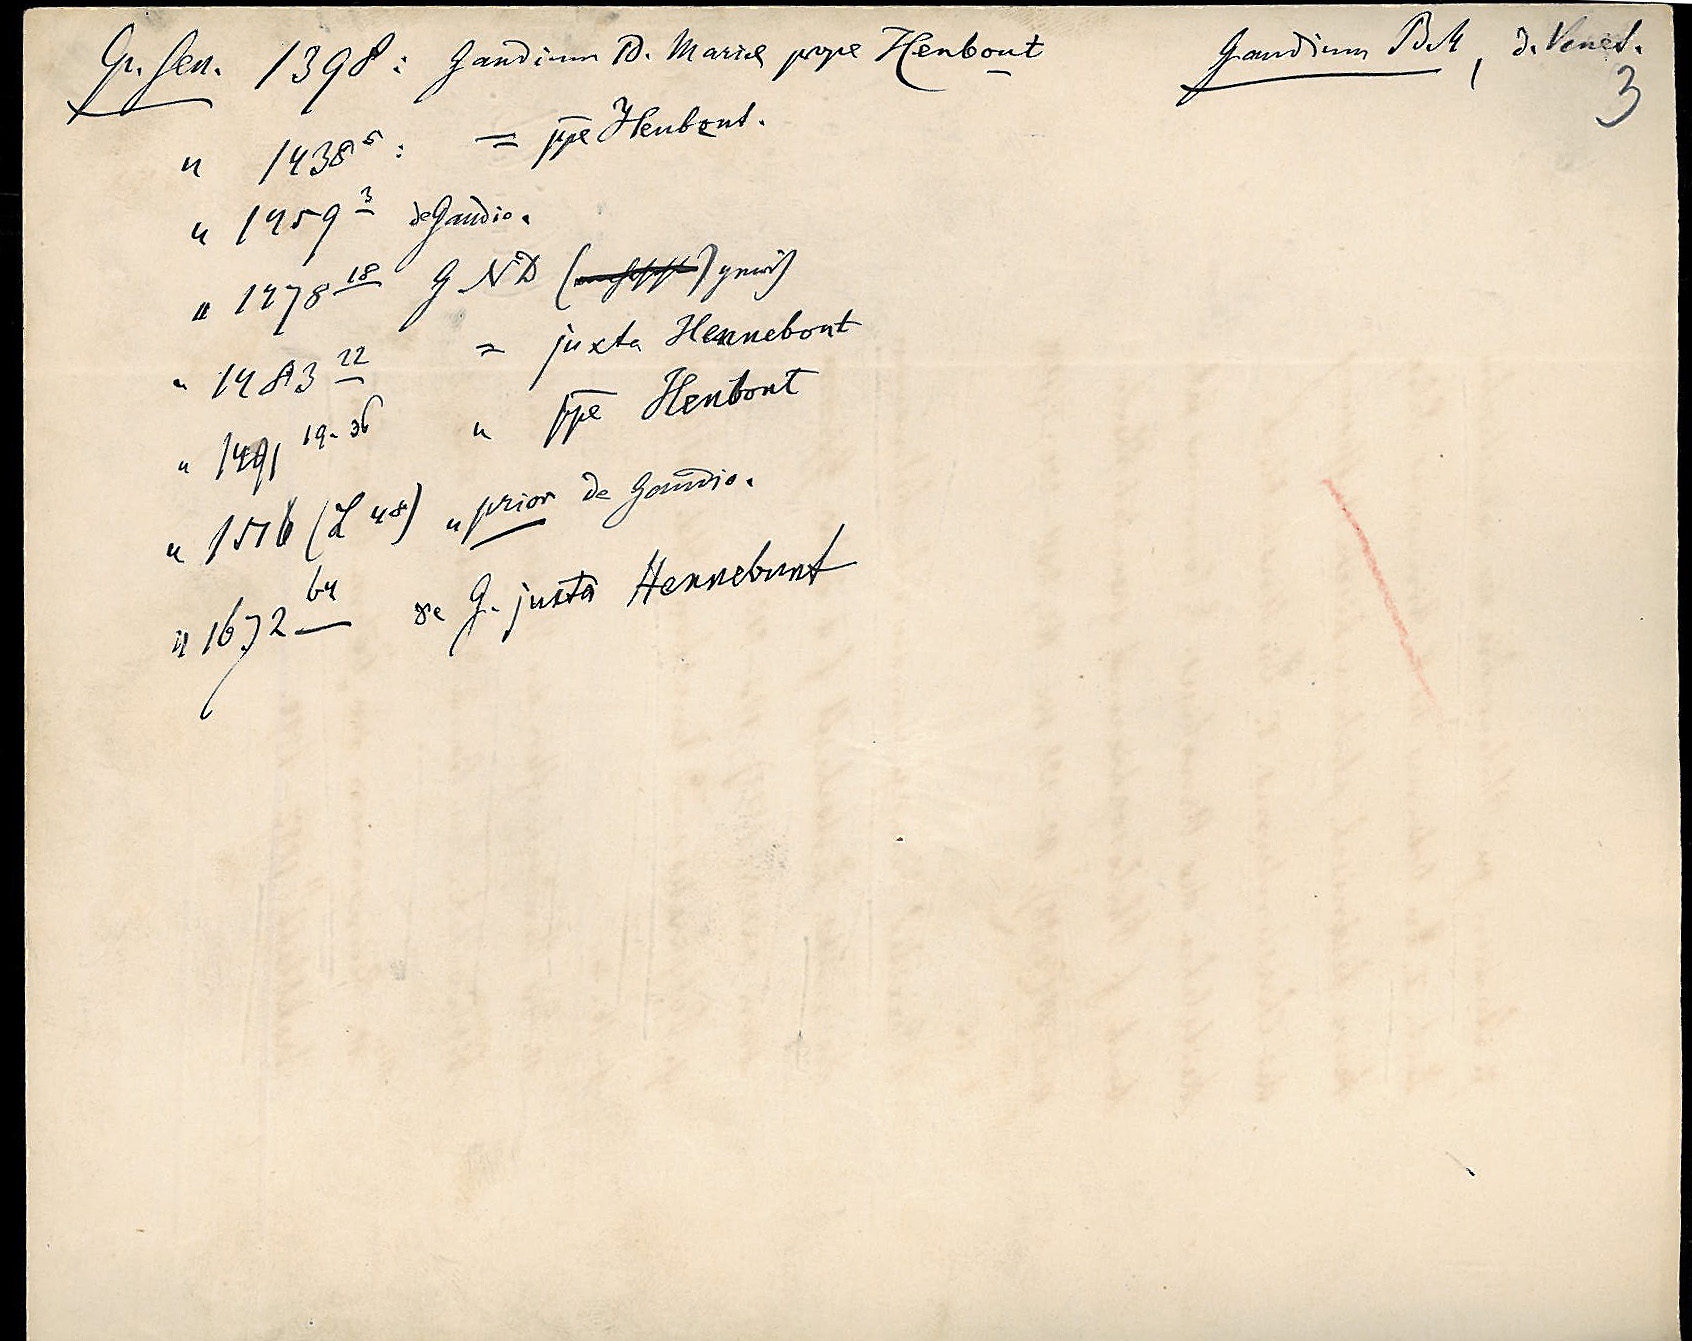 Cap. Gen. 1398 : Gaudium B. Mariæ prope Henbont Gaudium B.M, d. Venet.
3
" 1438⁵ : = ppe Henbont.
" 1459 ³ de Gaudio.
" 1478 ¹⁸ G ND ( )
" 1483 ²² = juxta Hennebont
" 1491 ¹⁹⁻³⁶ " ppe Henbont
" 1516 (L 48) " prior de Gaudio.
" 1672 ⁶⁴ de G. juxta Hennebont